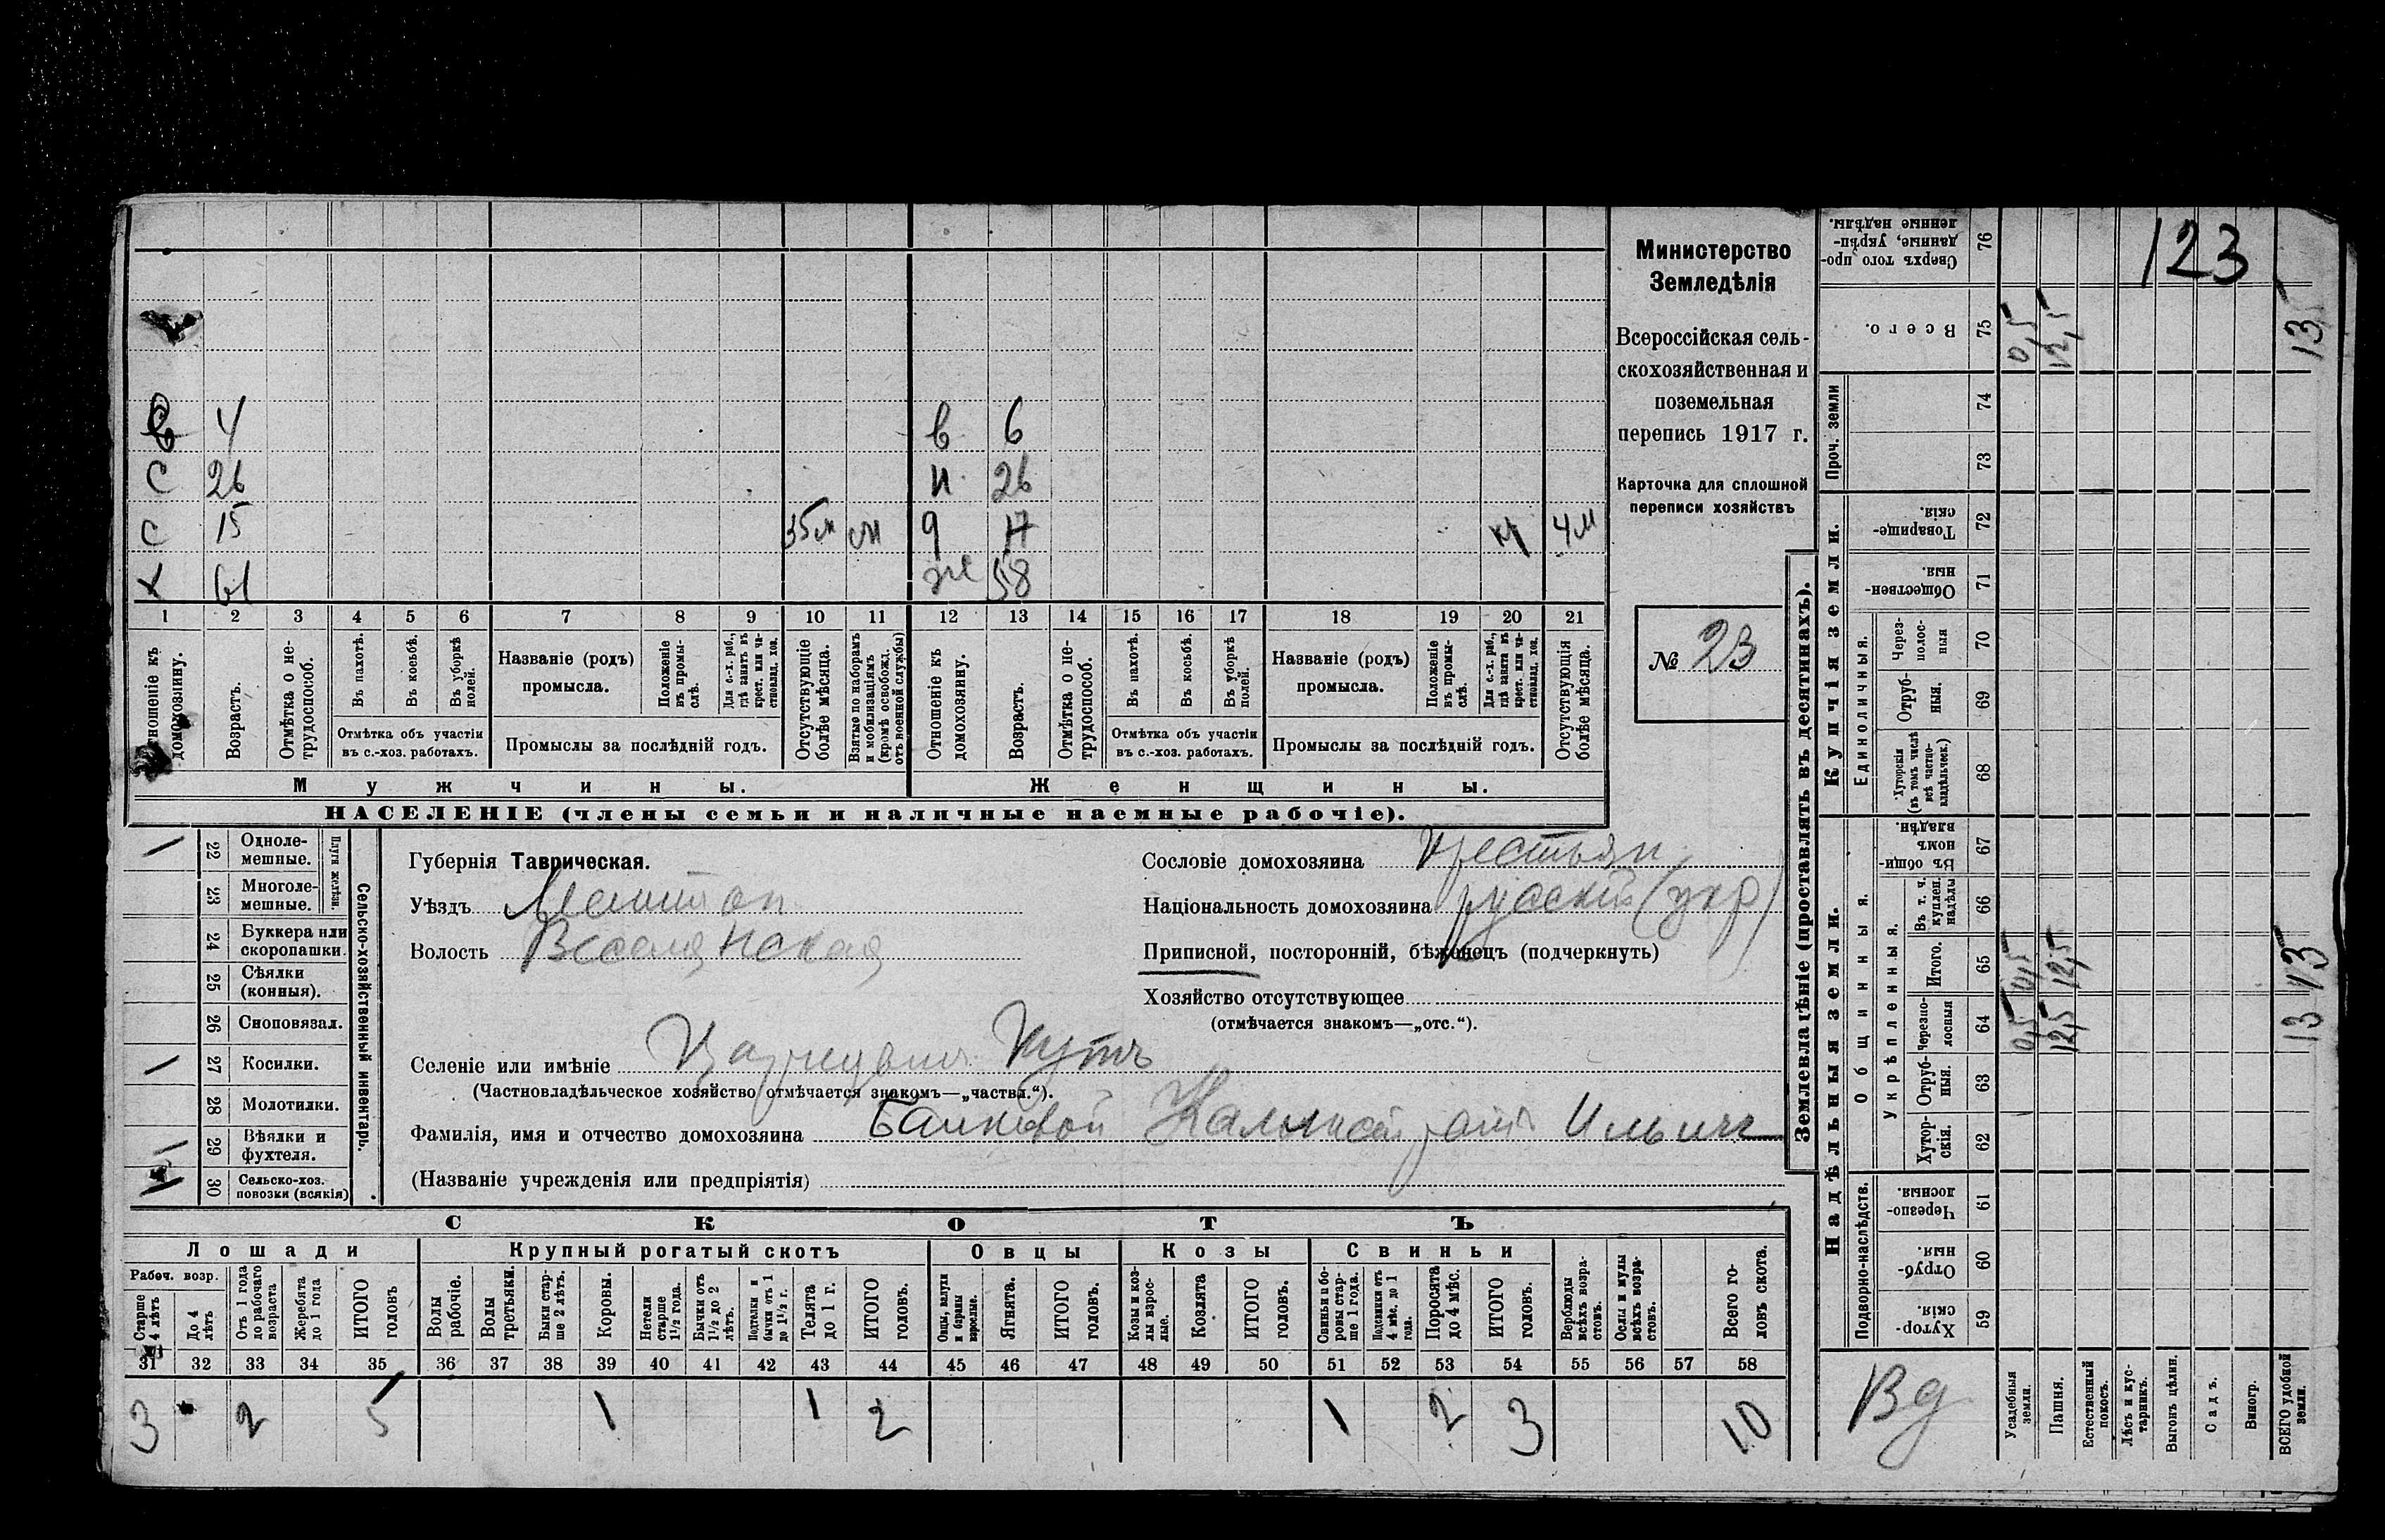 Министерство
Земледѣлія
Всероссійская сель-
скохозяйственная и
поземельная
перепись 1917 г.
Карточка для сплошной
переписи хозяйствъ
№ 23
123
в 4 в 6
с 26 н. 26
с 15 17
х 61 же 58
1 2 3 4 5 6 7 8 9 10 11 12 13 14 15 16 17 18 19 20 21
Отношеніе къ домохозяину.
Возрастъ.
Отмѣтка о не-
трудоспособ.
Въ пахотѣ.
Въ косьбѣ.
Въ уборкѣ полей.
Отмѣтка объ участіи
въ с.-хоз. работахъ.
Названіе (родъ)
промысла.
Положеніе въ промы-
слѣ.
Для с.-х. раб., гдѣ занятъ въ крест. или ча-
стновлад. хоз.
Промыслы за послѣдній годъ.
Отсутствующіе
болѣе мѣсяца.
Взятые по наборамъ
и мобилизаціямъ
(кромѣ освобожд.
отъ военной службы)
Отношеніе къ
домохозяину.
Возрастъ.
Отмѣтка о не-
трудоспособ.
Въ пахотѣ.
Въ косьбѣ.
Въ уборкѣ полей.
Отмѣтка объ участіи
въ с.-хоз. работахъ.
Названіе (родъ)
промысла.
Положеніе въ промы-
слѣ.
Для с.-х. раб., гдѣ занята въ крест. или ча-
стновлад. хоз.
Промыслы за послѣдній годъ.
Отсутствующія
болѣе мѣсяца.
Мужчины.
Женщины.
НАСЕЛЕНІЕ (члены семьи и наличные наемные рабочіе).
22 Одноле-
мешные.
23 Многоле-
мешные.
Плуги желѣзн.
24 Буккера или
скоропашки.
25 Сѣялки
(конныя).
26 Сноповязал.
27 Косилки.
28 Молотилки.
29 Вѣялки и
фухтеля.
30 Сельско-хоз.
повозки (всякія)
Сельско-хозяйственный инвентарь.
Губернія Таврическая.
Уѣздъ
Волость
Сословіе домохозяина крестьян
Національность домохозяина русскій (укр)
Приписной, посторонній, бѣженецъ (подчеркнуть)
Хозяйство отсутствующее
(отмѣчается знакомъ—„отс.“).
Селеніе или имѣніе Кутъ
(Частновладѣльческое хозяйство отмѣчается знакомъ—„частвл.“).
Фамилія, имя и отчество домохозяина Ильичъ
(Названіе учрежденія или предпріятія)
СКОТЪ
Лошади
Крупный рогатый скотъ
Овцы
Козы
Свиньи
Рабоч. возр.
Старше 4 лѣтъ
До 4 лѣтъ
Отъ 1 года
до рабочаго
возраста
Жеребята
до 1 года
ИТОГО
головъ
Волы
рабочіе.
Волы
третьяки.
Быки стар-
ше 2 лѣтъ.
Коровы.
Нетели
старше
1½ года.
Бычки отъ
1½ до 2
лѣтъ.
Подтелки и
бычки отъ 1
до 1½ г.
Телята
до 1 г.
ИТОГО
головъ.
Овцы, валухи
и бараны
взрослые.
Ягнята.
ИТОГО
головъ.
Козы и коз-
лы взрос-
лые.
Козлята
ИТОГО
головъ.
Свиньи и бо-
ровы стар-
ше 1 года.
Подсвинки отъ
4 мѣс. до 1
года.
Поросята
до 4 мѣс.
ИТОГО
головъ.
Верблюды
всѣхъ возра-
стовъ.
Ослы и мулы
всѣхъ возра-
стовъ.
Всего го-
ловъ скота.
31 32 33 34 35 36 37 38 39 40 41 42 43 44 45 46 47 48 49 50 51 52 53 54 55 56 57 58
3 2 5 1 1 2 1 2 3 10
Землевладѣніе (проставлять въ десятинахъ).
Купчія земли.
Надѣльныя земли.
Сверхъ того про-
данные, укрѣп-
ленные надѣлы. 76
Всего. 75 0,5 12,5 13
Проч. земли 74 73
Товарище-
скія. 72
Обществен-
ныя. 71
Единоличныя.
Через-
полос-
ныя 70
Отруб-
ныя. 69
Хуторскія
(въ томъ числѣ
всѣ частно-
владѣльческ.) 68
Общинныя.
Въ общи-
номъ
владѣн. 67
Укрѣпленныя.
Въ т. ч.
куплен.
надѣлы 66
Итого. 65 0,5 12,5 13
Черезпо-
лосныя 64 0,5 12,5 13
Отруб-
ныя. 63
Хутор-
скія. 62
Подворно-наслѣдств.
Черезпо-
лосныя. 61
Отруб-
ныя. 60
Хутор-
скія. 59
Усадебныя
земли.
Пашня.
Естественный
покосъ.
Лѣсъ и кус-
тарникъ.
Выгонъ цѣлин.
Садъ.
Виногр.
ВСЕГО удобной
земли.